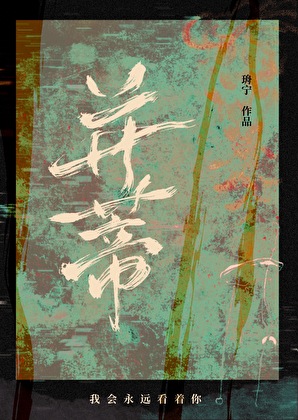 并蒂
琑宁 作品
我会永远看着你